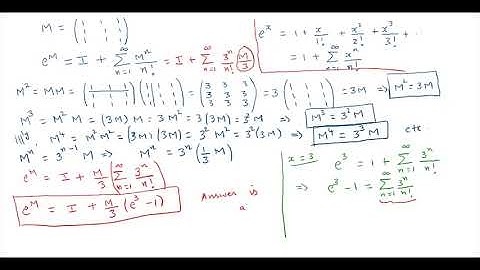 M = ( 1 1 1 1 1 1 1 1 1 )
e^M = I + ∑_{n=1}^{∞} M^n/n! = I + ∑_{n=1}^{∞} 3^n/n! M/3
e^x = 1 + x/1! + x^2/2! + x^3/3! + ..
= 1 + ∑_{n=1}^{∞} x^n/n!
M^2 = MM = ( 1 1 1 1 1 1 1 1 1 ) ( 1 1 1 1 1 1 1 1 1 ) = ( 3 3 3 3 3 3 3 3 3 ) = 3 ( 1 1 1 1 1 1 1 1 1 ) ⇒ M^2 = 3M
M^3 = M^2 M = (3M) M = 3 M^2 = 3 (3M) = 3^2 M ⇒ M^3 = 3^2 M
M^4 = M^2 M^2 = (3M) (3M) = 3^2 M^2 = 3^2 (3M) ⇒ M^4 = 3^3 M etc
M^n = 3^{n-1} M ⇒ M^n = 3^n (1/3 M)
e^M = I + M/3 ( ∑_{n=1}^{∞} 3^n/n! )
e^M = I + M/3 (e^3 - 1)
Answer is
a
x = 3 e^3 = 1 + ∑_{n=1}^{∞} 3^n/n!
⇒ e^3 - 1 = ∑_{n=1}^{∞} 3^n/n!